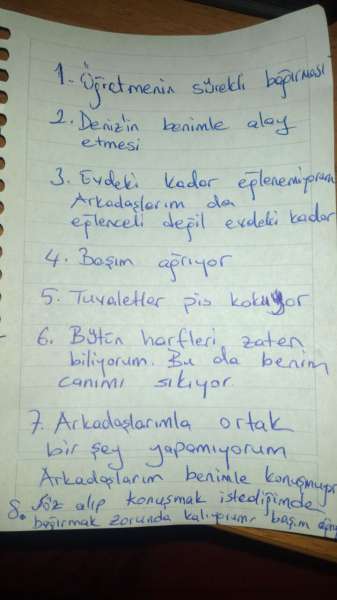 1. Öğretmenin sürekli bağırması
2. Deniz'in benimle alay
etmesi
3. Evdeki kadar eğlenemiyorum
Arkadaşlarım da
eğlenceli değil evdeki kadar
4. Başım ağrıyor
5. Tuvaletler pis kokuyor
6. Bütün harfleri zaten
biliyorum. Bu da benim
canımı sıkıyor.
7. Arkadaşlarımla ortak
bir şey yapamıyorum
Arkadaşlarım benimle konuşmuyor
8. Söz alıp konuşmak istediğimde
bağırmak zorunda kalıyorum, başım